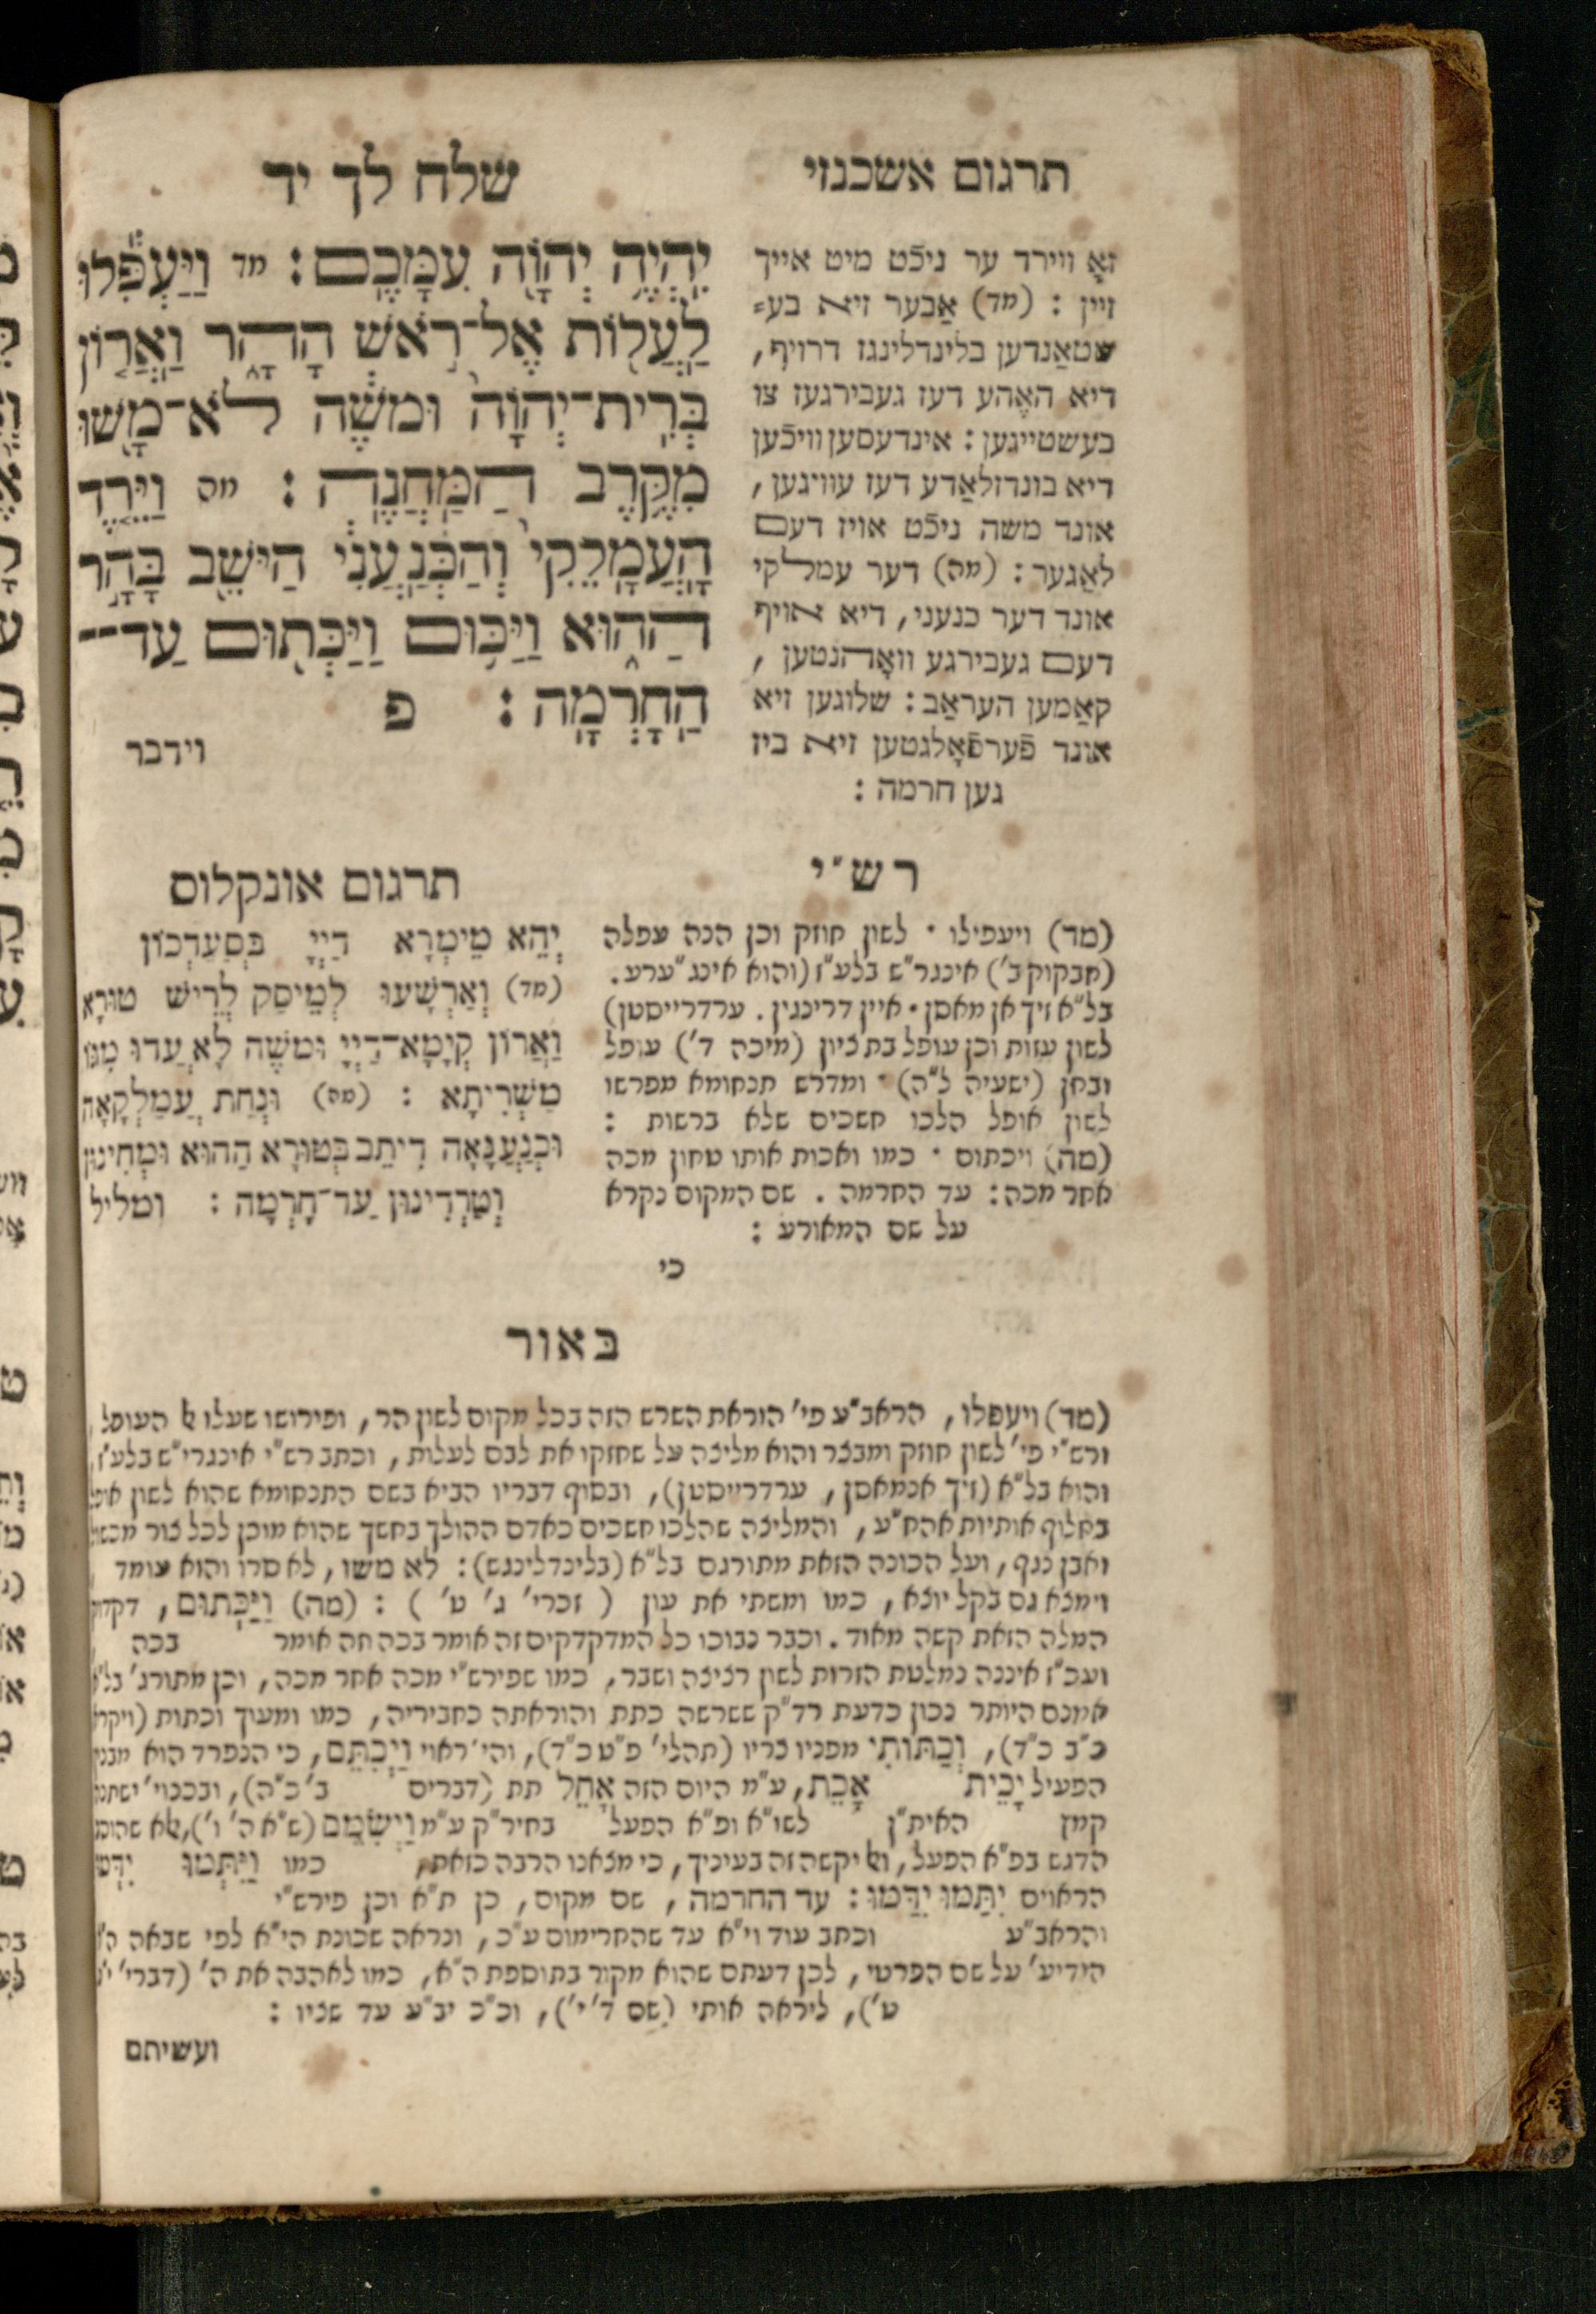 תרגום אשכנזי
שלח לך יד
זאָ ווירד ער ניכֿט מיט אייך
זיין : (מד) אַבער זיא בע=
שטאַנדען בלינדלינגז דרויף,
דיא האָהע דעז געבירגעז צו
בעשטייגען : אינדעסען וויכֿען
דיא בונדזלאַדע דעז עוויגען,
אונד משה ניכֿט אויז דעם
לאַגער : (מה) דער עמלקי
אונד דער כנעני, דיא אויף
דעם געבירגע וואָהנטען,
קאַמען העראַב : שלוגען זיא
אונד פֿערפֿאָלגטען זיא ביז
גען חרמה :
יִהְיֶ֥ה יְהוָ֖ה עִמָּכֶֽם : מד וַיַּעְפִּ֕לוּ
לַעֲל֖וֹת אֶל־רֹ֣אשׁ הָהָ֑ר וַאֲר֤וֹן
בְּרִית־יְהוָה֙ וּמֹשֶׁ֔ה לֹא־מָ֖שׁוּ
מִקֶּ֥רֶב הַֽמַּחֲנֶֽה : מה וַיֵּ֤רֶד
הָעֲמָלֵקִי֙ וְהַֽכְּנַעֲנִ֔י הַיֹּשֵׁ֖ב בָּהָ֣ר
הַה֑וּא וַיַּכּ֥וּם וַֽיַּכְּת֖וּם עַד־
הַֽחָרְמָֽה : פ
וידבר
רש״י
(מד) ויעפילו · לשון חוזק וכן הנה עפלה
(חבקוק ב׳) אינגר״ש בלע״ז (והוא אינג״ערע.
בל״א זיך אן מאסן · איין דרינגין. ערדרייסטן)
לשון עזות וכן עופל בת ציון (מיכה ד׳) עופל
ובחן (ישעיה ל״ה) · ומדרש תנחומא מפרשו
לשון אופל הלכו חשכים שלא ברשות :
(מה) ויכתום · כמו ואכות אותו טחון מכה
אחר מכה: עד החרמה . שם המקום נקרא
על שם המאורע :
כי
תרגום אונקלוס
יְהֵא מֵימְרָא דַיְיָ בְּסַעְדְכוֹן
(מד) וְאַרְשָׁעוּ לְמֵיסַק לְרֵישׁ טוּרָא
וַאֲרוֹן קְיָמָא־דַיְיָ וּמֹשֶׁה לָא עֲדוּ מִגּוֹ
מַשְׁרִיתָא : (מה) וּנְחַת עֲמַלְקָאָה
וּכְנַעֲנָאָה דְיָתֵב בְּטוּרָא הַהוּא וּמְחִינוּן
וְטָרְדִינוּן עַד־חָרְמָה : ומליל
באור
(מד) ויעפלו, הראב״ע פי׳ הוראת השרש הזה בכל מקום לשון הר, ופירושו שעלו אל העופל,
ורש״י פי׳ לשון חוזק ומבצר והוא מליצה על שחזקו את לבם לעלות, וכתב רש״י אינגרי״ש בלע״ז,
והוא בל״א (זיך אנמאסן, ערדרייסטן), ובסוף דבריו הביא בשם התנחומא שהוא לשון אופל
בחלוף אותיות אהח״ע, והמליצה שהלכו חשכים כאדם ההולך בחשך שהוא מוכן לכל צור מכשול
ואבן נגף, ועל הכונה הזאת מתורגם בל״א (בלינדלינגש): לא משו, לא סרו והוא עומד
וימצא גם בקל יוצא, כמו ומשתי את עון ( זכרי׳ ג׳ ט׳ ) : (מה) וַיַּכְּתוּם, דקדוק
המלה הזאת קשה מאוד. וכבר נבוכו כל המדקדקים זה אומר בכה וזה אומר בכה
ועכ״ז איננה נמלטת הזרות לשון רציצה ושבר, כמו שפירש״י מכה אחר מכה, וכן מתורג׳ בל״א
אמנם היותר נכון כדעת רד״ק ששרשה כתת והוראתה כחביריה, כמו ומעוך וכתות (ויקרא
כ״ב כ״ד), וְכַתּוֹתִי מפניו צריו (תהלי׳ פ״ט כ״ד), והי׳ ראוי וַיְכִתֵּם, כי הנפרד הוא מבנין
הפעיל יָכֵית אָכֵת, ע״מ היום הזה אָחֵל תת (דברים ב׳ כ״ה), ובכנוי׳ ישתנו
קמץ האית״ן לשו״א ופ״א הפעל בחיר״ק ע״מ וַיְשִׂמֵם (ש״א ה׳ ו׳), אלא שהוסג
הדגש בפ״א הפעל, ואל יקשה זה בעיניך, כי מצאנו הרבה כזאת, כמו וַיִּתְּמוּ יִדְּמוּ
הראוים יִתַּמּוּ יִדַּמּוּ : עד החרמה, שם מקום, כן ת״א וכן פירש״י
והראב״ע וכתב עוד וי״א עד שהחרימום ע״כ, ונראה שכונת הי״א לפי שבאה ה״א
הידיע׳ על שם הפרטי, לכן דעתם שהוא מקור בתוספת ה״א, כמו לאהבה את ה׳ (דברי׳ י״א
ט׳), ליראה אותי (שם ד׳ י׳), וכ״כ יב״ע עד שציו :
ועשיתם